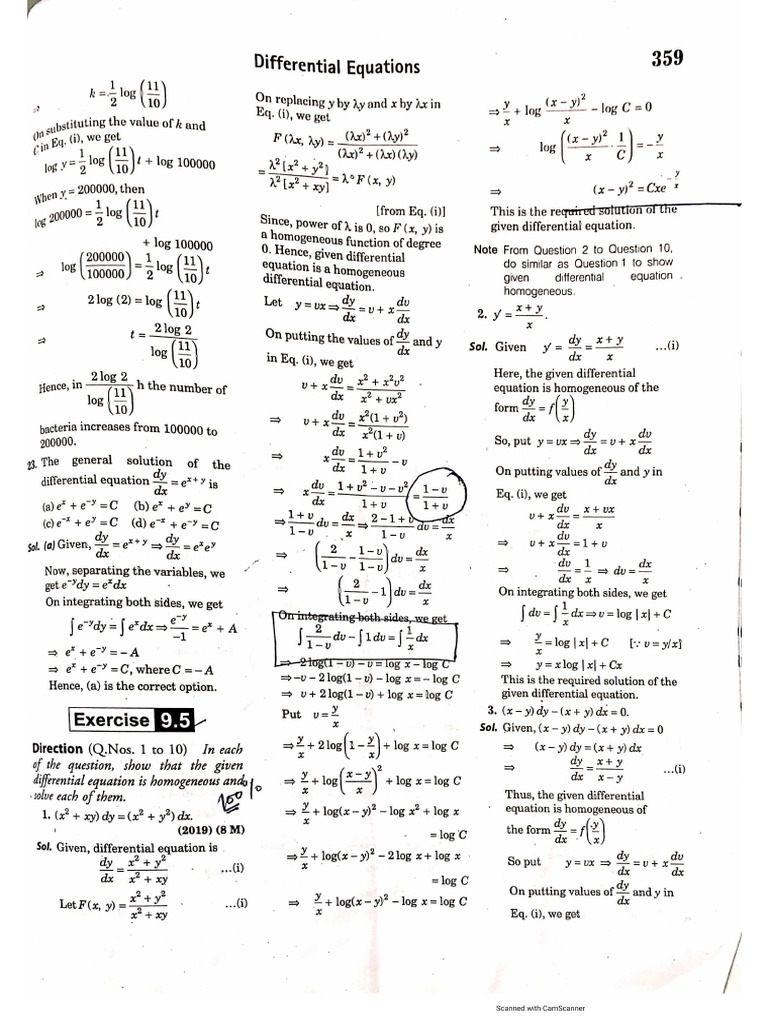 Differential Equations
359
⇒ k = 1/2 log (11/10)
On substituting the value of k and
C in Eq. (i), we get
log y = 1/2 log (11/10) t + log 100000
When y = 200000, then
log 200000 = 1/2 log (11/10) t
+ log 100000
⇒ log (200000/100000) = 1/2 log (11/10) t
⇒ 2 log (2) = log (11/10) t
⇒ t = 2 log 2 / log (11/10)
Hence, in 2 log 2 / log (11/10) h the number of
bacteria increases from 100000 to
200000.
23. The general solution of the
differential equation dy/dx = e^(x + y) is
(a) e^x + e^(–y) = C (b) e^x + e^y = C
(c) e^(–x) + e^y = C (d) e^(–x) + e^(–y) = C
Sol. (a) Given, dy/dx = e^(x + y) ⇒ dy/dx = e^x e^y
Now, separating the variables, we
get e^(–y) dy = e^x dx
On integrating both sides, we get
∫ e^(–y) dy = ∫ e^x dx ⇒ e^(–y)/–1 = e^x + A
⇒ e^x + e^(–y) = – A
⇒ e^x + e^(–y) = C, where C = – A
Hence, (a) is the correct option.
Exercise 9.5
Direction (Q.Nos. 1 to 10) In each
of the question, show that the given
differential equation is homogeneous and
solve each of them.
1. (x² + xy) dy = (x² + y²) dx.
(2019) (8 M)
Sol. Given, differential equation is
dy/dx = (x² + y²)/(x² + xy) ...(i)
Let F(x, y) = (x² + y²)/(x² + xy) ...(i)
On replacing y by λy and x by λx in
Eq. (i), we get
F (λx, λy) = ((λx)² + (λy)²)/((λx)² + (λx) (λy))
= λ² [x² + y²]/λ² [x² + xy] = λ° F (x, y)
[from Eq. (i)]
Since, power of λ is 0, so F (x, y) is
a homogeneous function of degree
0. Hence, given differential
equation is a homogeneous
differential equation.
Let y = vx ⇒ dy/dx = v + x dv/dx
On putting the values of dy/dx and y
in Eq. (i), we get
v + x dv/dx = (x² + x²v²)/(x² + vx²)
⇒ v + x dv/dx = x²(1 + v²)/x²(1 + v)
⇒ x dv/dx = (1 + v²)/(1 + v) – v
⇒ x dv/dx = (1 + v² – v – v²)/(1 + v) = (1 – v)/(1 + v)
⇒ (1 + v)/(1 – v) dv = dx/x ⇒ (2 – 1 + v)/(1 – v) dv = dx/x
⇒ (2/(1 – v) – (1 – v)/(1 – v)) dv = dx/x
⇒ (2/(1 – v) – 1) dv = dx/x
On integrating both sides, we get
∫ 2/(1 – v) dv – ∫ 1 dv = ∫ 1/x dx
⇒ – 2 log(1 – v) – v = log x – log C
⇒ –v – 2 log(1 – v) – log x = – log C
⇒ v + 2 log(1 – v) + log x = log C
Put v = y/x
⇒ y/x + 2 log (1 – y/x) + log x = log C
⇒ y/x + log ((x – y)/x)² + log x = log C
⇒ y/x + log(x – y)² – log x² + log x
= log C
⇒ y/x + log(x – y)² – 2 log x + log x
= log C
⇒ y/x + log(x – y)² – log x = log C
⇒ y/x + log (x – y)²/x – log C = 0
⇒ log ((x – y)²/x · 1/C) = – y/x
⇒ (x – y)² = Cxe^(–y/x)
This is the required solution of the
given differential equation.
Note From Question 2 to Question 10,
do similar as Question 1 to show
given differential equation
homogeneous.
2. y′ = (x + y)/x.
Sol. Given y′ = dy/dx = (x + y)/x ...(i)
Here, the given differential
equation is homogeneous of the
form dy/dx = f(y/x)
So, put y = vx ⇒ dy/dx = v + x dv/dx
On putting values of dy/dx and y in
Eq. (i), we get
v + x dv/dx = (x + vx)/x
⇒ v + x dv/dx = 1 + v
⇒ dv/dx = 1/x ⇒ dv = dx/x
On integrating both sides, we get
∫ dv = ∫ 1/x dx ⇒ v = log | x | + C
⇒ y/x = log | x | + C [∵ v = y/x]
⇒ y = x log | x | + Cx
This is the required solution of the
given differential equation.
3. (x – y) dy – (x + y) dx = 0.
Sol. Given, (x – y) dy – (x + y) dx = 0
⇒ (x – y) dy = (x + y) dx
⇒ dy/dx = (x + y)/(x – y) ...(i)
Thus, the given differential
equation is homogeneous of
the form dy/dx = f(y/x)
So put y = vx ⇒ dy/dx = v + x dv/dx
On putting values of dy/dx and y in
Eq. (i), we get
Scanned with CamScanner